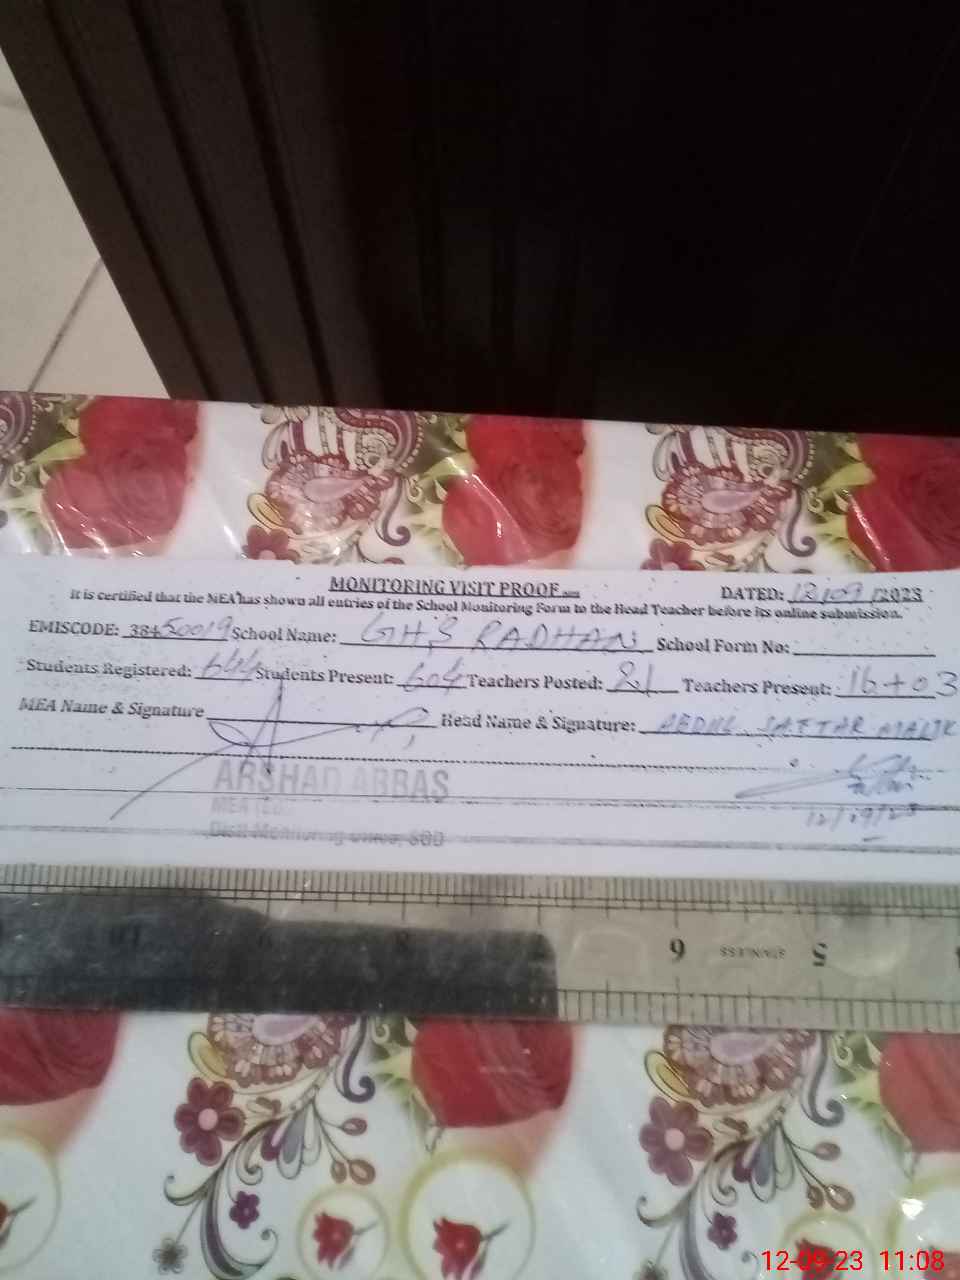 MONITORING VISIT PROOF DATED: 12/09/2023
It is certified that the MEA has shown all entries of the School Monitoring Form to the Head Teacher before its online submission.
EMISCODE: 38450019 School Name: GHS RADHAN School Form No:
Students Registered: 644 Students Present: 604 Teachers Posted: 21 Teachers Present: 16+03
MEA Name & Signature Head Name & Signature: ABDUL SATTAR MALIK
ARSHAD ABBAS
MEA
Distt Monitoring Office, SGD
12/09/23
6 STAINLESS 5
12-09-23 11:08